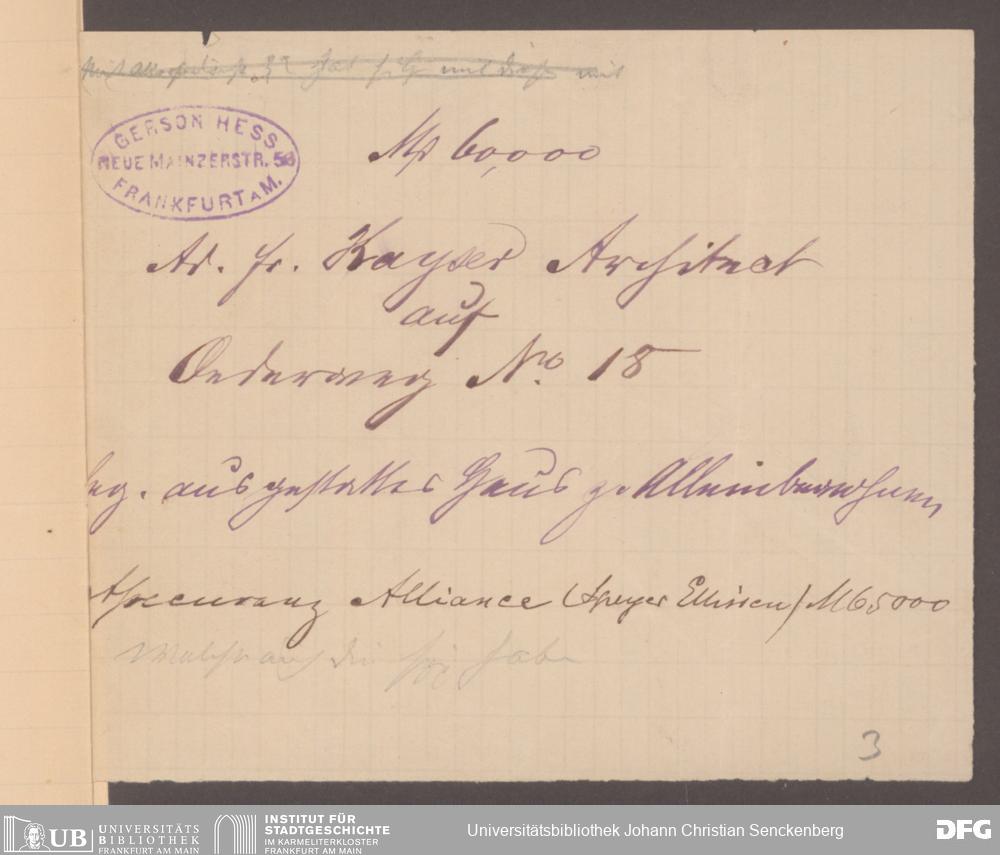 mit
GERSON HESS
NEUE MAINZERSTR. 58
FRANKFURT A M.
Mk 60,000
Ad. Fr. Kayser Architect
auf
Oederweg No. 18
eleg. ausgestattes Haus z. Alleinbewohnen
Assecuranz Alliance (Speyer Ellissen) M 65000
auch die
3
UB UNIVERSITÄTS
BIBLIOTHEK
FRANKFURT AM MAIN
INSTITUT FÜR
STADTGESCHICHTE
IM KARMELITERKLOSTER
FRANKFURT AM MAIN
Universitätsbibliothek Johann Christian Senckenberg
DFG